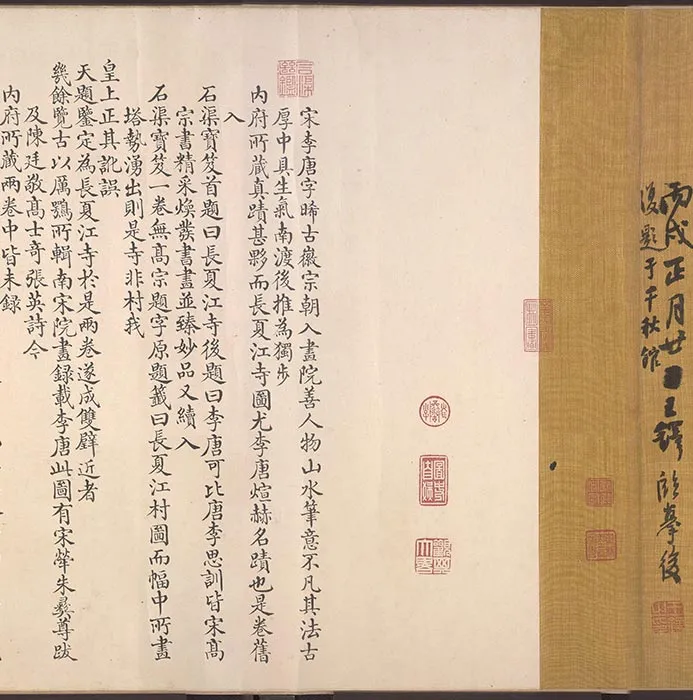 丙戌正月廿王鐸臨摹後
復題于千秋館
宋李唐字晞古徽宗朝入畫院善人物山水筆意不凡其法古
厚中具生氣南渡後推為獨步
內府所藏真蹟甚夥而長夏江寺圖尤李唐煊赫名蹟也是卷舊
入
石渠寶笈首題曰長夏江寺後題曰李唐可比唐李思訓皆宋高
宗書精采煥發書畫並臻妙品又續入
石渠寶笈一卷無高宗題字原題籤曰長夏江村圖而幅中所畫
塔勢湧出則是寺非村我
皇上正其訛誤
天題鑒定為長夏江寺於是兩卷遂成雙璧近者
幾餘覽古以厲鶚所輯南宋院畫錄載李唐此圖有宋犖朱彝尊跋
及陳廷敬高士奇張英詩今
內府所藏兩卷中皆未錄